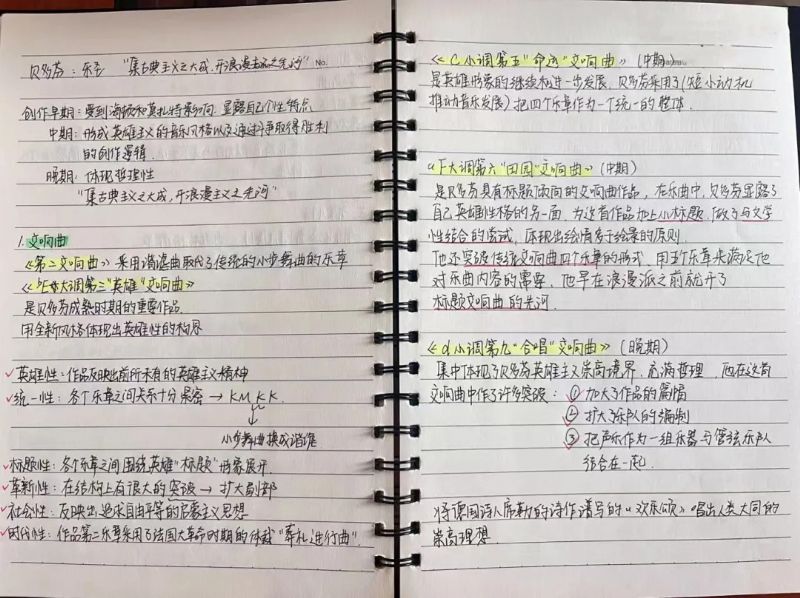 贝多芬：乐圣 "集古典主义之大成，开浪漫主义之先河" No.
创作早期：受到海顿和莫扎特影响，显露自己个性特点
中期：形成英雄主义的音乐风格以及通过斗争取得胜利
的创作逻辑.
晚期：体现哲理性
"集古典主义之大成，开浪漫主义之先河"
1. 交响曲
《第二交响曲》采用谐谑曲取代了传统的小步舞曲的乐章
大调第三"英雄"交响曲》
是贝多芬成熟时期的重要作品.
用全新风格体现出英雄性的构思
英雄性：作品反映出前所未有的英雄主义精神
统一性：各个乐章之间关系十分紧密 → K M K K
小步舞曲换成谐谑
标题性：各乐章之间围绕英雄"标题"形象展开.
革新性：在结构上有很大的突破 → 扩大展部
社会性：反映出追求自由平等的启蒙主义思想
时代性：作品第二乐章采用了法国大革命时期的体裁"葬礼进行曲".
《C小调第五"命运"交响曲》(中期)
是英雄形象的继续和进一步发展，贝多芬采用了(短小动机
推动音乐发展) 把四个乐章作为一个统一的整体.
《F大调第六"田园"交响曲》(中期)
是贝多芬具有标题倾向的交响曲作品，在乐曲中，贝多芬显露了
自己英雄性格的另一面，为这首作品加上小标题，做了与文学
性结合的尝试，体现出绘情多于绘景的原则.
他还突破传统交响曲四个乐章的形式，用五个乐章来满足他
对乐曲内容的需要，他早在浪漫派之前就开了
标题交响曲的先河.
《d小调第九"合唱"交响曲》(晚期)
集中体现了贝多芬英雄主义崇高境界，充满哲理，他在这首
交响曲中作了许多突破：① 加大了作品的篇幅
② 扩大了乐队的编制
③ 把声乐作为一组乐器与管弦乐队
结合在一起.
将德国诗人席勒的诗作谱写的"欢乐颂"唱出人类大同的
崇高理想.